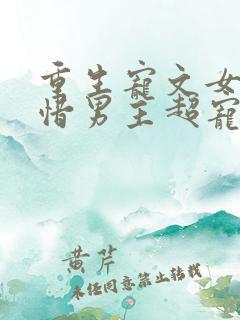 重生寵文女
惜男主超寵
黄芹
未经同意禁止转载